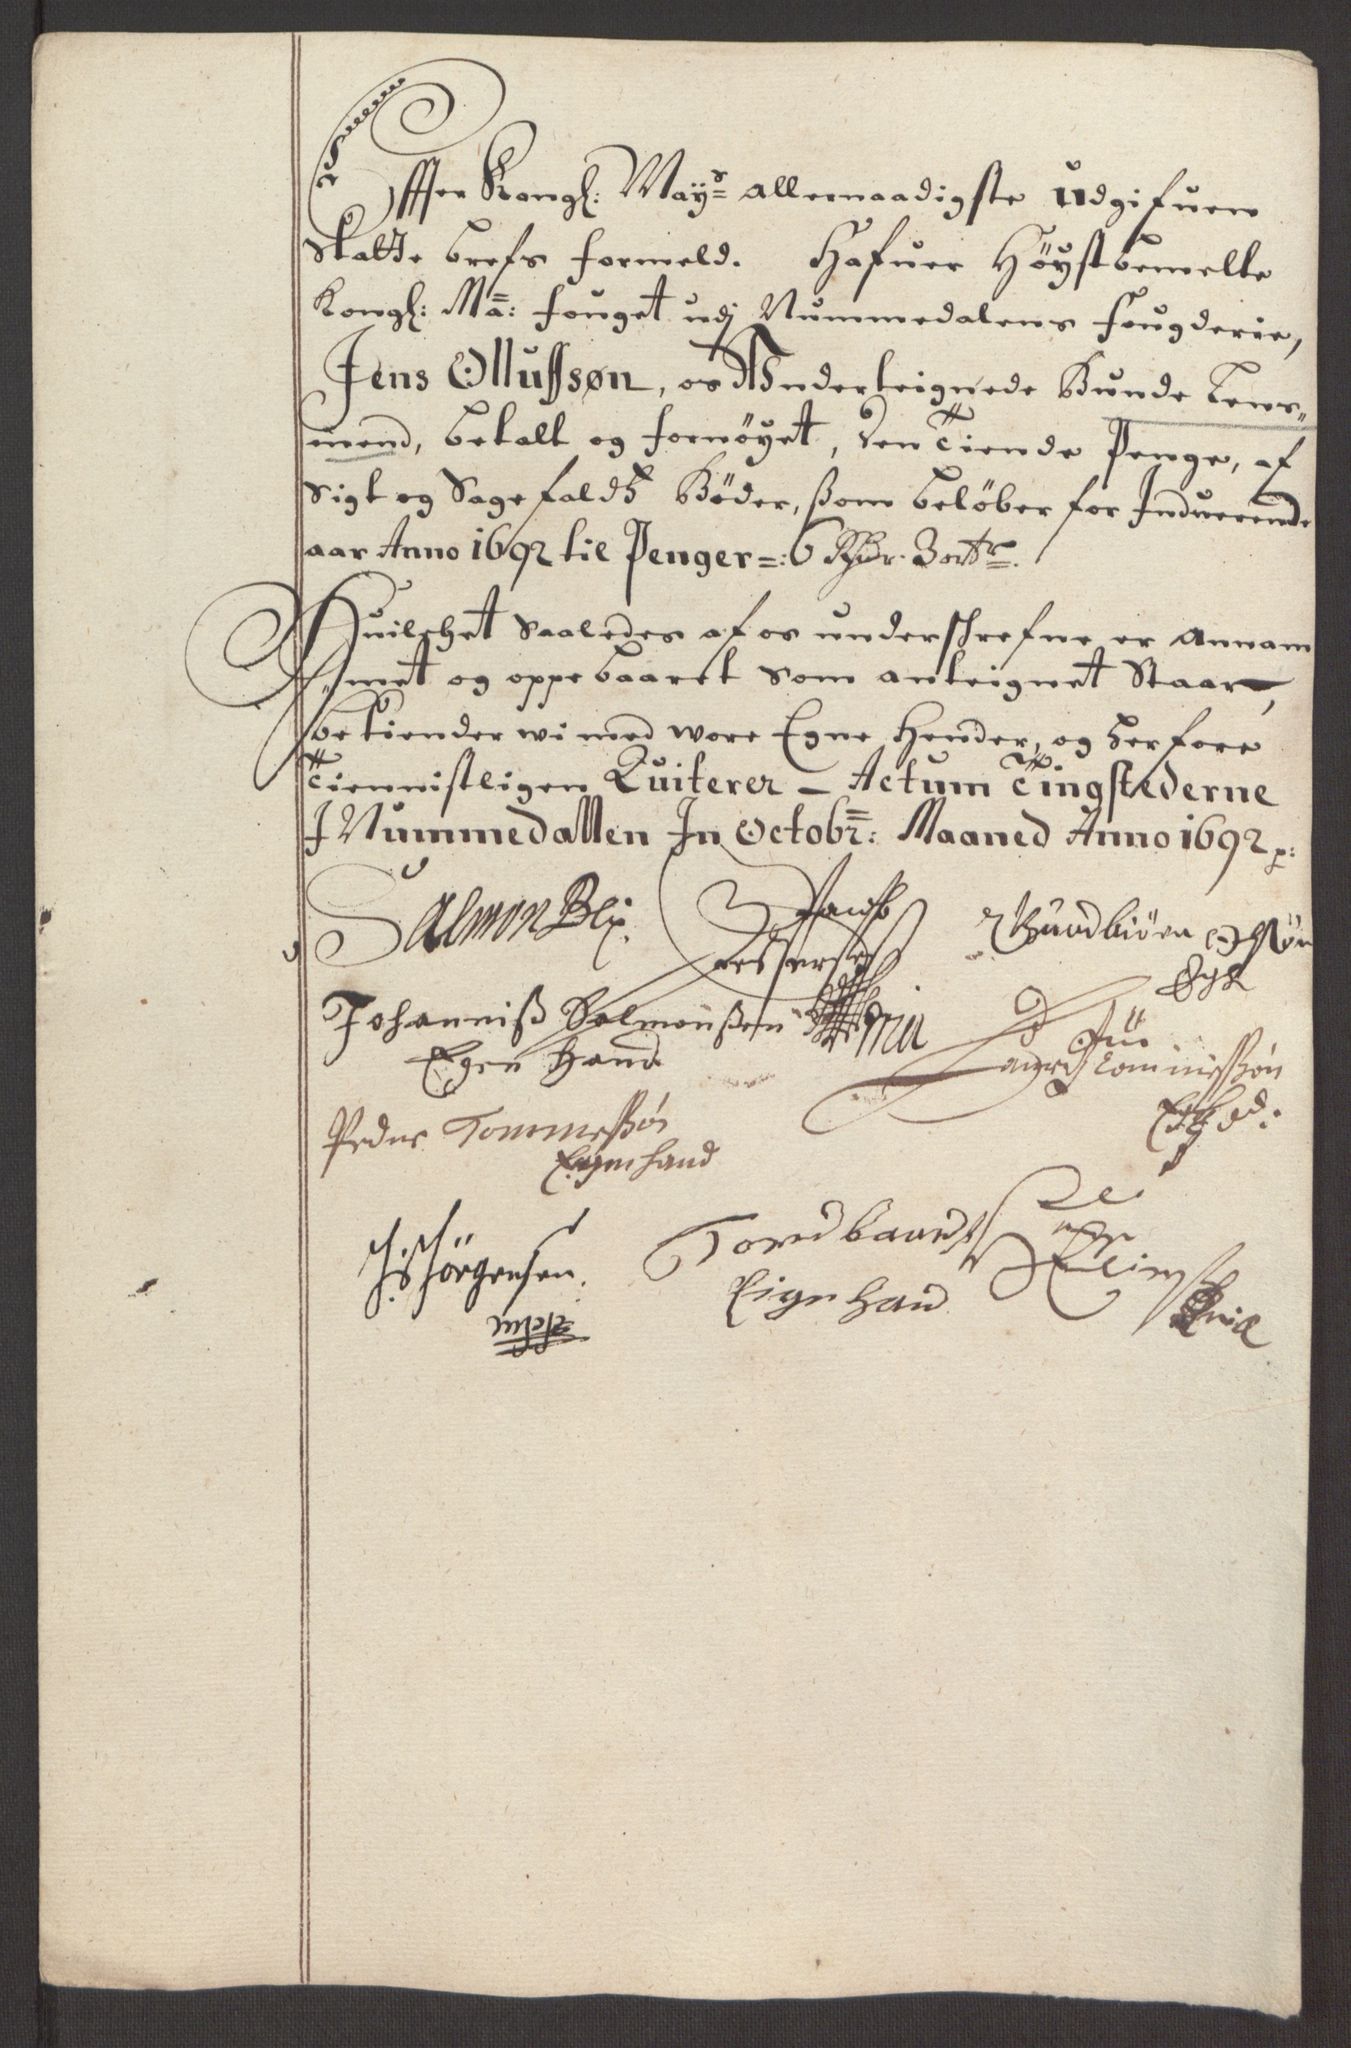 Effter Kongl: Mayts allernaadigste udgifuen
Skatte brefs formeld. Hafuer Høystbemelte
Kongl: Ma: fouget udj Nummedalens fougderie,
Jens Olluffsøn, os Underteignede Bunde Lens-
mend, betalt og fornøyet, den Tiende Penge, af
Sigt og Sagefaldtz Bøder, som beløber for Indverende
aar Anno 1692 til Penger =: 6 Rixdr. 3 ort.
Huilchet Saaledes af os underschrefne er annam
met og oppebaaret som anteignet Staar,
bekiender wi med wore Egne Hender, og herfore
Tiennistligen Quiterer – Actum Tingstederne
J Nummedallen Jn Octobr: Maaned Anno 1692 p:
Salmon Blix. Jacob Gudbiören
Johanniß Salmonßen
Egen Hand
Peder Tommeßøn
Egenhand
Jörgensen.
Tord baardß
Eigen hand